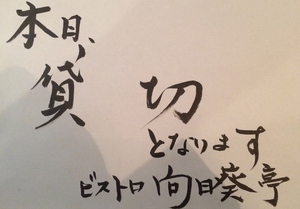 本日、
貸切
となります
ビストロ向日葵亭